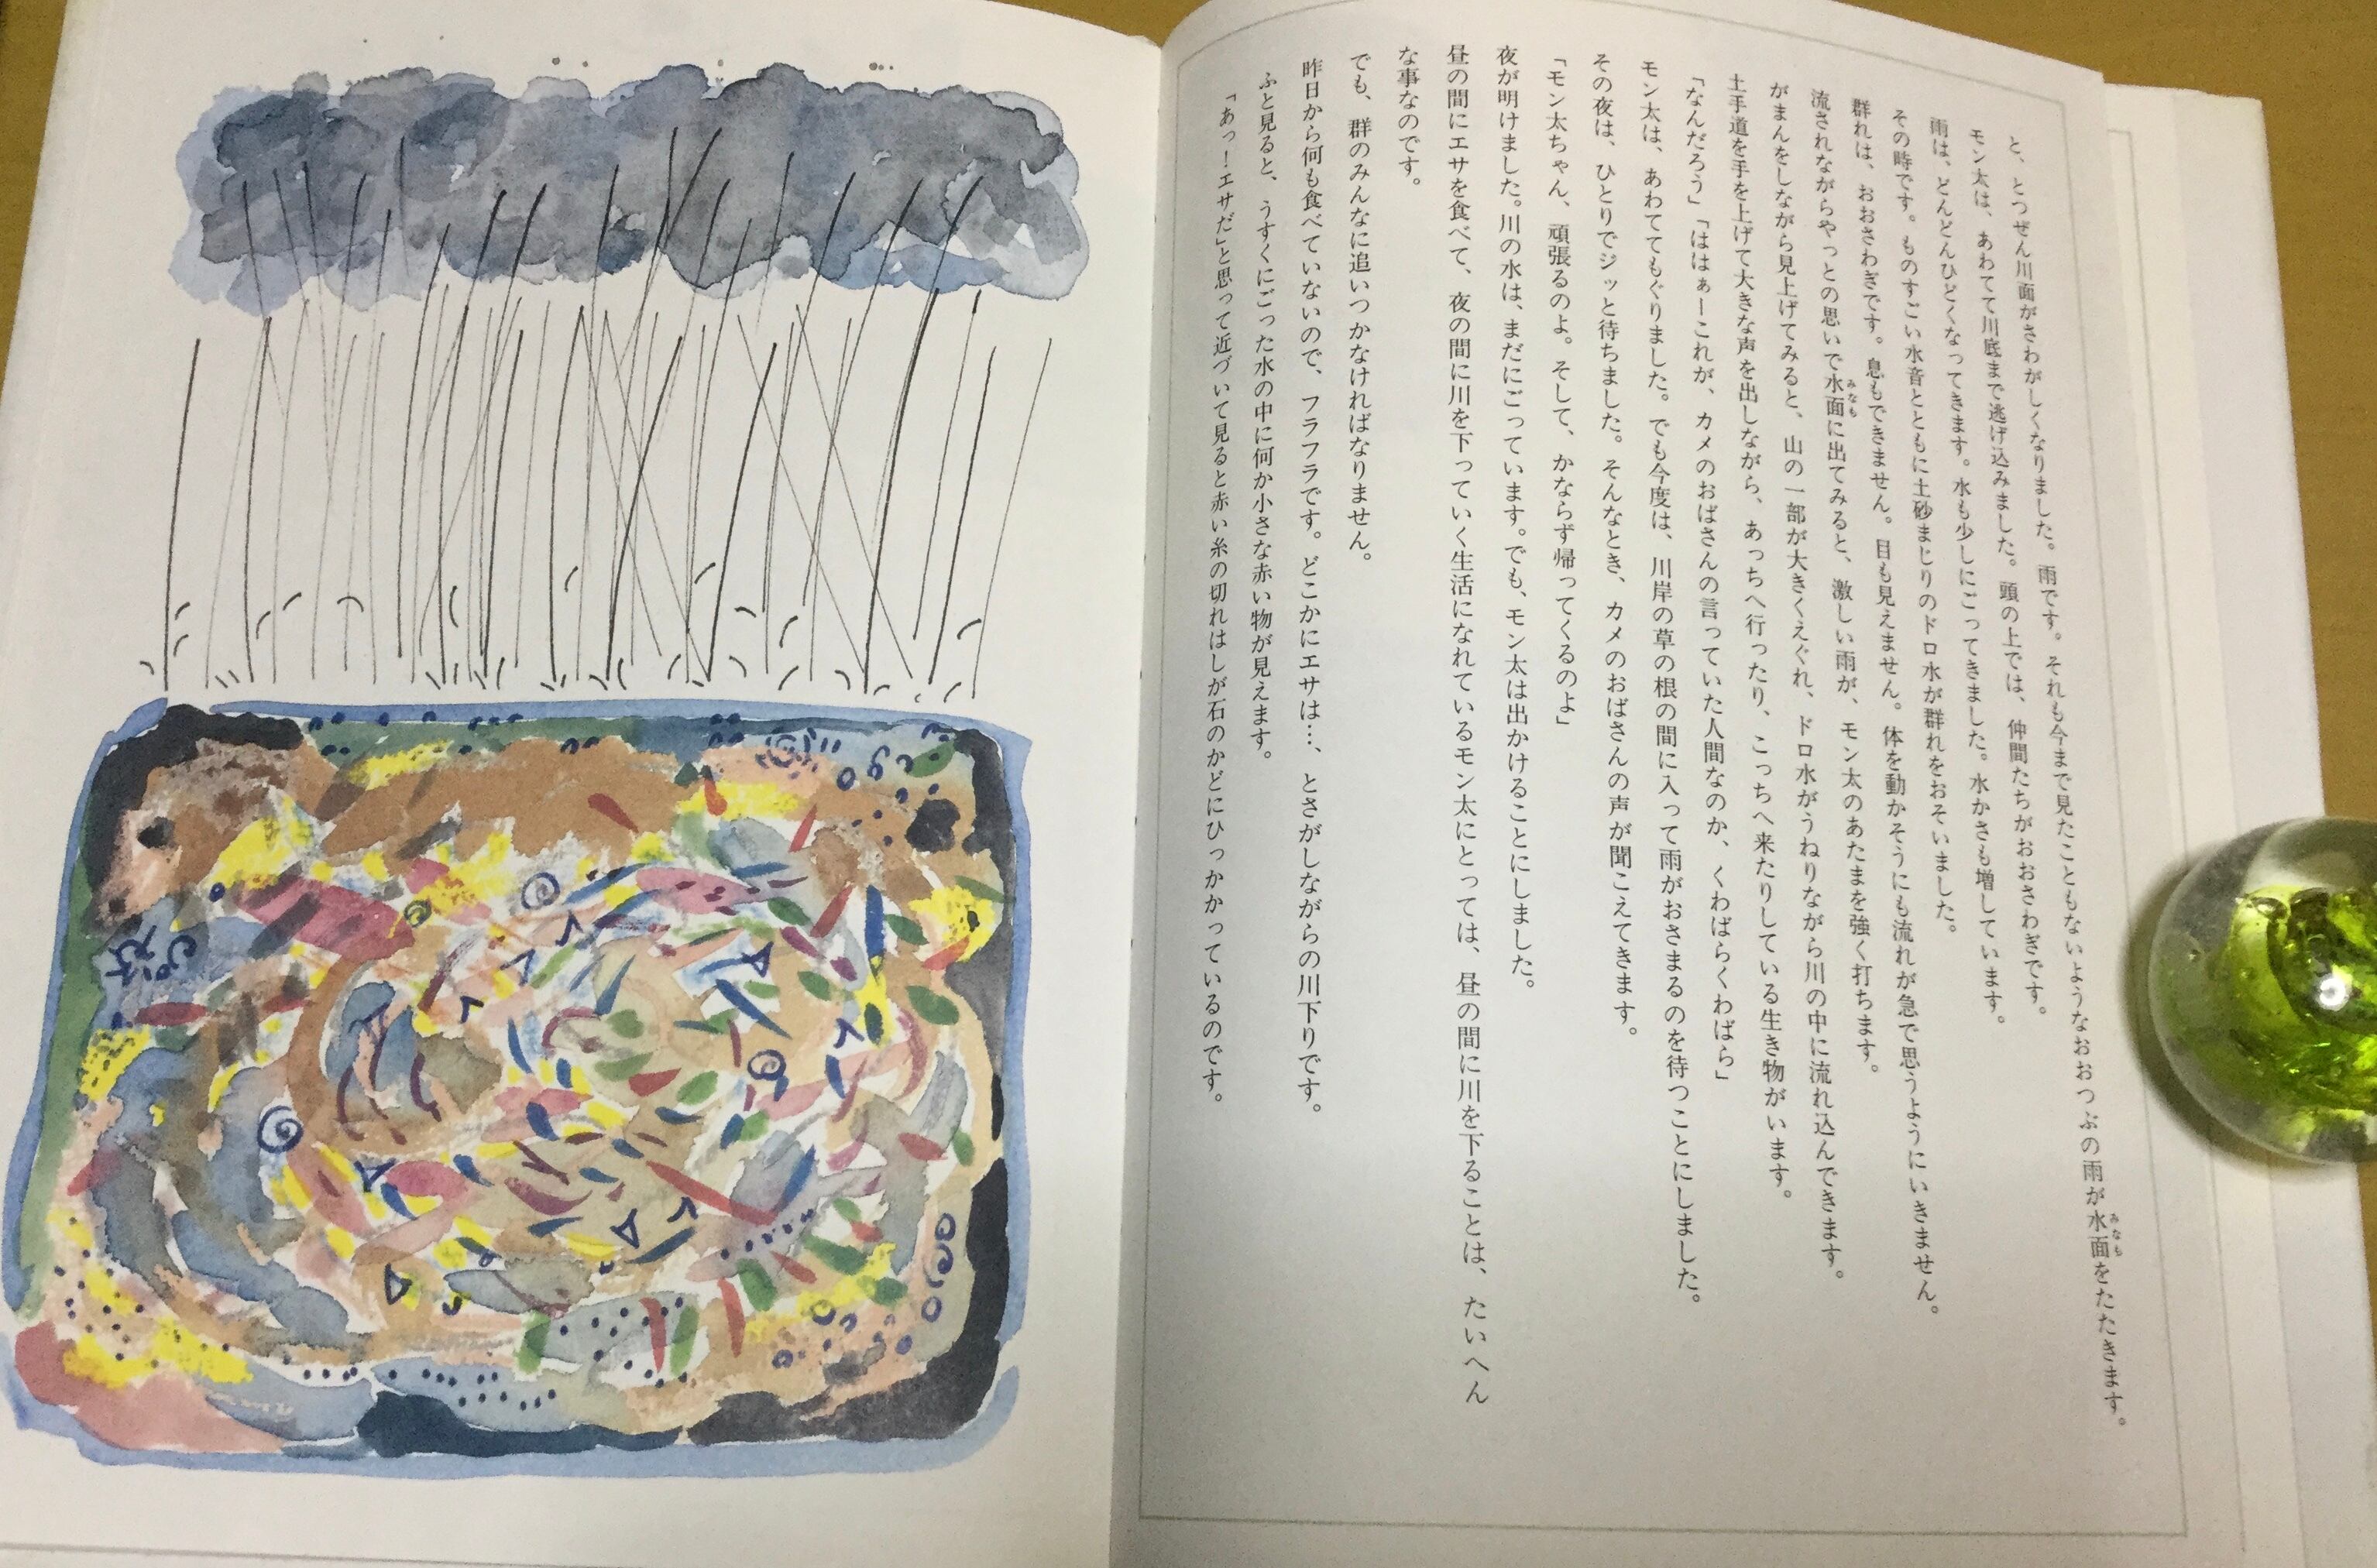 と、とつぜん川面がさわがしくなりました。雨です。それも今まで見たこともないようなおおつぶの雨が水面をたたきます。
みなも
モン太は、あわてて川底まで逃げ込みました。頭の上では、仲間たちがおおさわぎです。
雨は、どんどんひどくなってきます。水も少しにごってきました。水かさも増しています。
その時です。ものすごい水音とともに土砂まじりのドロ水が群れをおそいました。
群れは、おおさわぎです。息もできません。目も見えません。体を動かそうにも流れが急で思うようにいきません。
流されながらやっとの思いで水面に出てみると、激しい雨が、モン太のあたまを強く打ちます。
みなも
がまんをしながら見上げてみると、山の一部が大きくえぐれ、ドロ水がうねりながら川の中に流れ込んできます。
土手道を手を上げて大きな声を出しながら、あっちへ行ったり、こっちへ来たりしている生き物がいます。
「なんだろう」「ははぁーこれが、カメのおばさんの言っていた人間なのか、くわばらくわばら」
モン太は、あわててもぐりました。でも今度は、川岸の草の根の間に入って雨がおさまるのを待つことにしました。
その夜は、ひとりでジッと待ちました。そんなとき、カメのおばさんの声が聞こえてきます。
「モン太ちゃん、頑張るのよ。そして、かならず帰ってくるのよ」
夜が明けました。川の水は、まだにごっています。でも、モン太は出かけることにしました。
昼の間にエサを食べて、夜の間に川を下っていく生活になれているモン太にとっては、昼の間に川を下ることは、たいへん
な事なのです。
でも、群のみんなに追いつかなければなりません。
昨日から何も食べていないので、フラフラです。どこかにエサは…、とさがしながらの川下りです。
ふと見ると、うすくにごった水の中に何か小さな赤い物が見えます。
「あっ!エサだ」と思って近づいて見ると赤い糸の切れはしが石のかどにひっかかっているのです。